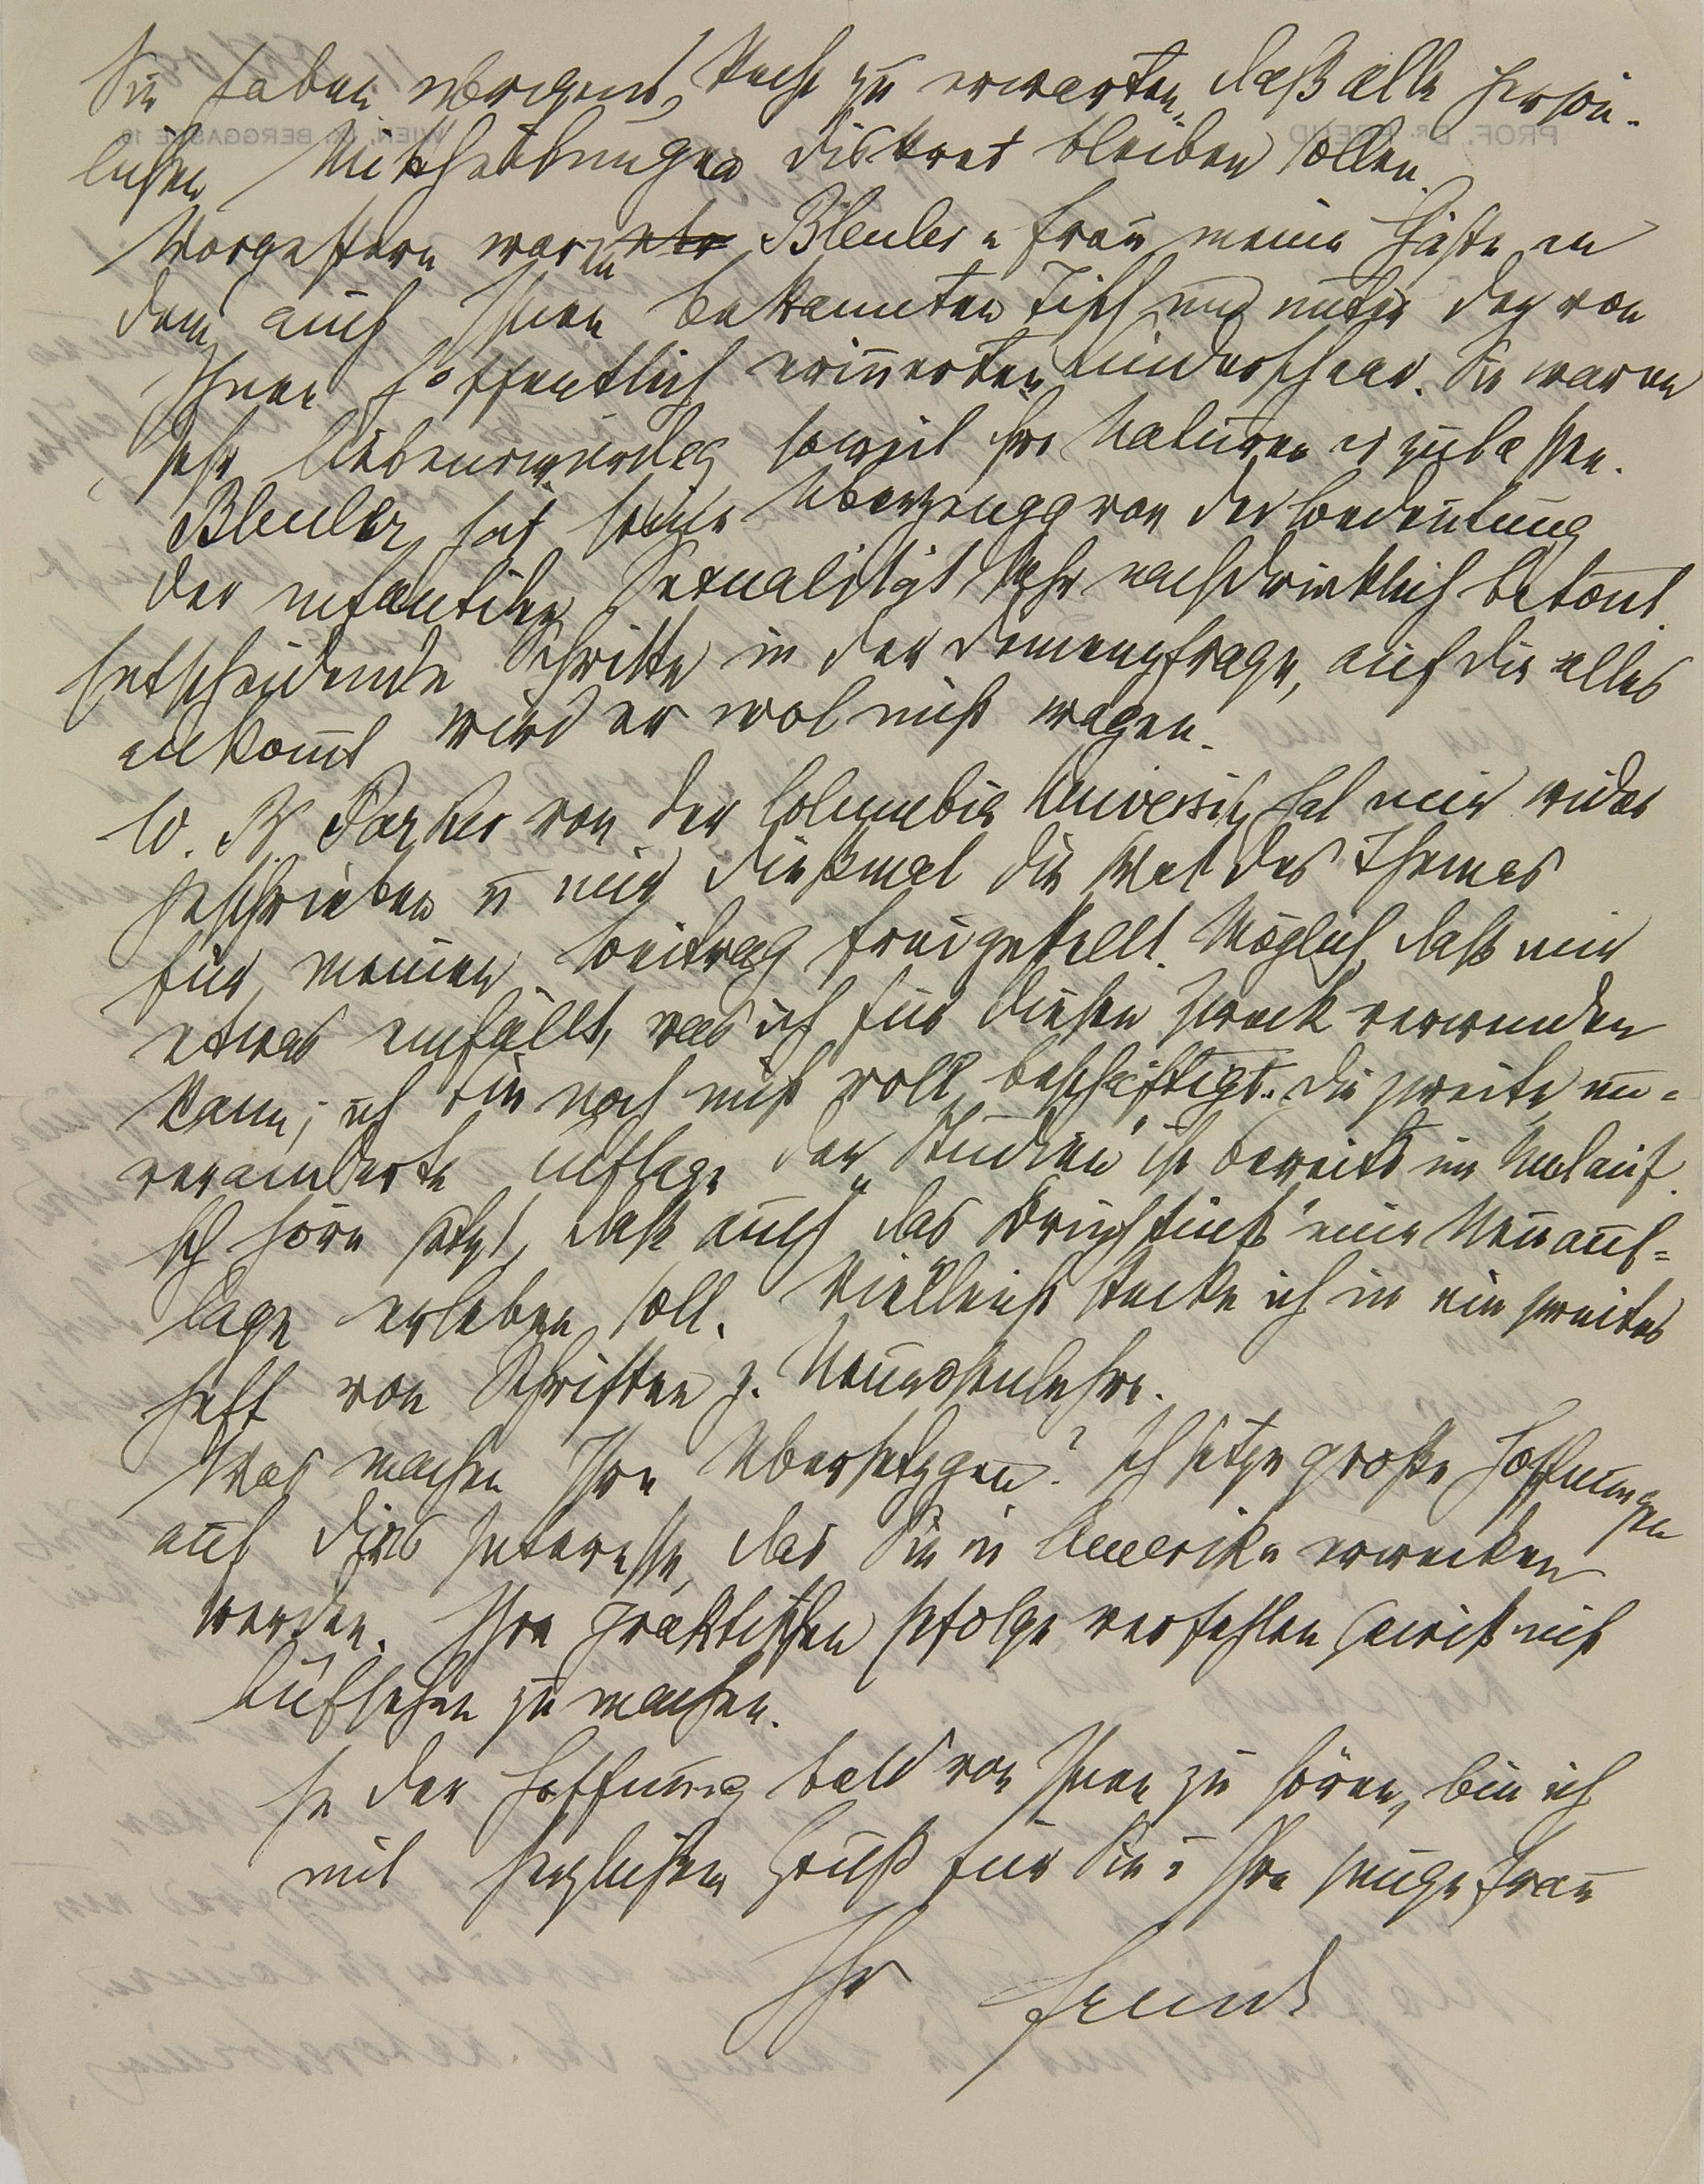 Sie haben übrigens Recht zu erwarten, daß alle persön-
lichen Mittheilungen diskret bleiben sollen.
Vorgestern waren Bleuler u Frau meine Gäste an
dem auch Ihnen bekannten Tisch und unter der von
Ihnen hoffentlich erinnerten Kinderschaar. Sie waren
sehr liebenswürdig, soweit ihre Naturen es zulassen.
Bleuler hat seine Überzeugg von der Bedeutung
der infantilen Sexualität sehr nachdrücklich betont.
Entscheidende Schritte in der Demenzfrage, auf die alles
ankomt wird er wol nicht wagen.
W. B. Parker von der Columbia University hat mir wieder
geschrieben u mir dießmal die Wal des Themas
für meinen Beitrag freigestellt. Möglich, daß mir
etwas einfällt, was ich für diesen Zweck verwenden
kann; ich bin noch nicht voll beschäftigt. Die zweite un-
veränderte Auflage der „Studien" ist bereits im Umlauf.
Ich höre jetzt, daß auch das Bruchstück eine Neuauf-
lage erleben soll. Vielleicht stecke ich in ein zweites
Heft von Schriften z. Neurosenlehre.
Was machen Ihre Übersetzgen? Ich setze große Hoffnungen
auf das Interesse, das Sie in Amerika erwecken
werden. Ihre praktischen Erfolge verfehlen gewiß nicht
Aufsehen zu machen.
In der Hoffnung bald von Ihnen zu hören, bin ich
mit herzlichem Gruß für Sie u Ihre junge Frau
Ihr Freud
PROF. DR. FREUD
WIEN, IX. BERGGASSE 19